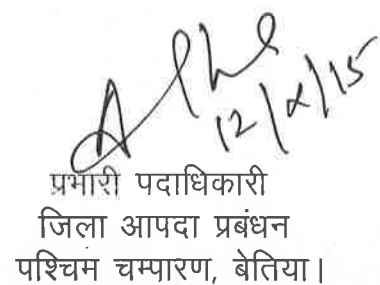 12/8/15
प्रभारी पदाधिकारी
जिला आपदा प्रबंधन
पश्चिम चम्पारण, बेतिया।